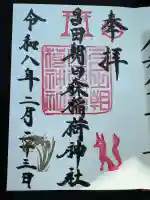 奉拝
吉田朝日森稲荷神社
令和八年二月二十三日